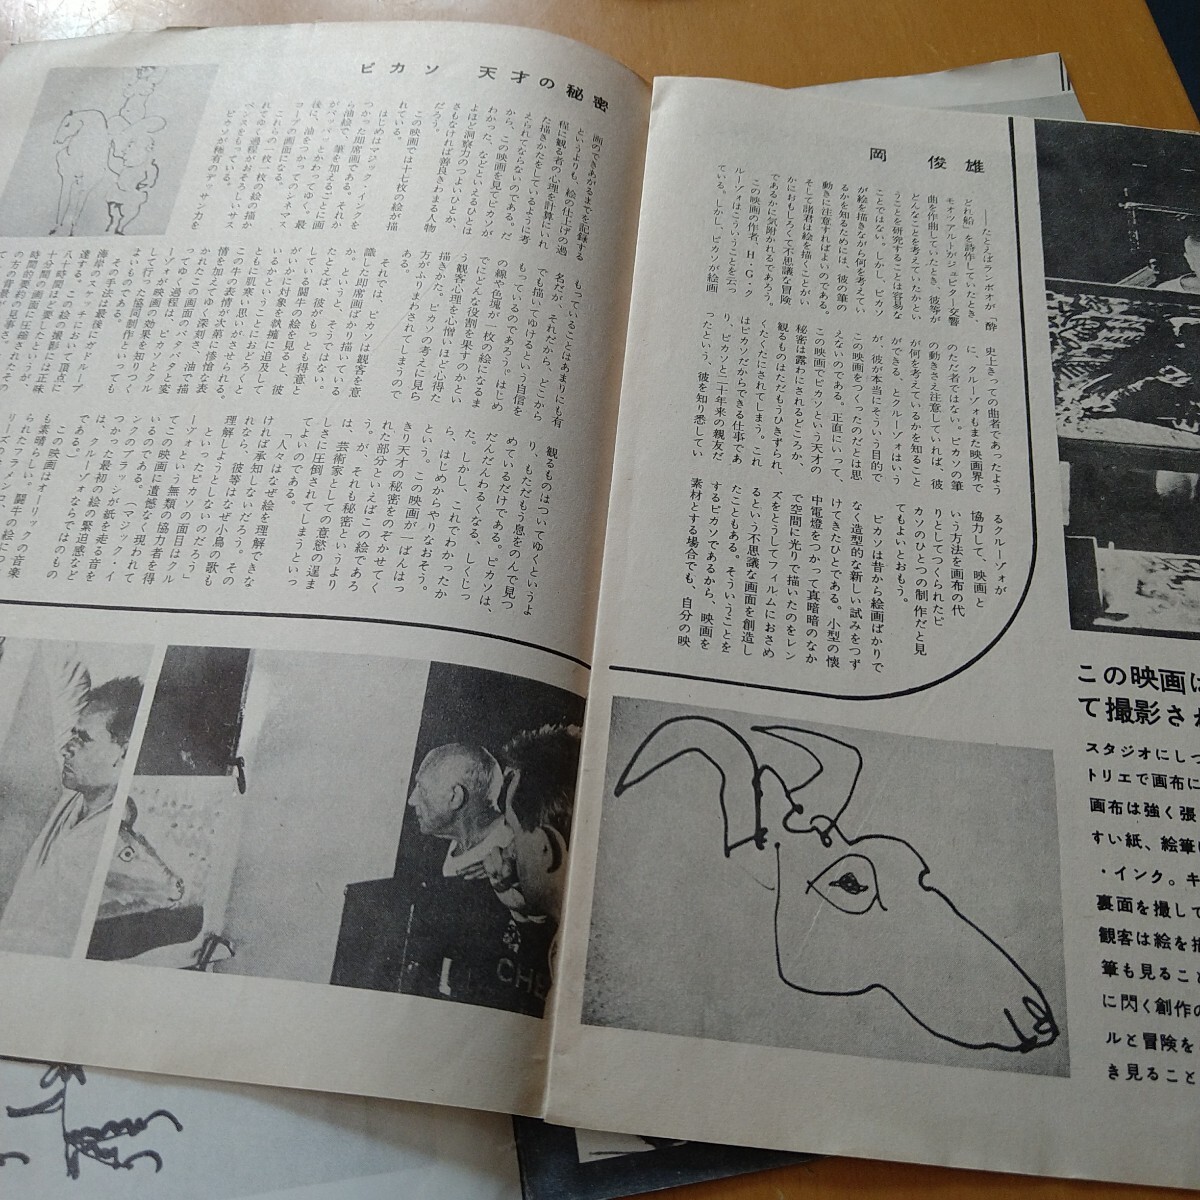 ピカソ 天才の秘密
岡 俊雄
――たとえばランボオが「酔
どれ船」を詩作していたとき、
モオツアルトがジュピター交響
曲を作曲していたとき、彼等が
どんなことを考えていたかとい
うことを研究することは容易な
ことではない。しかし、ピカソ
が絵を描きながら何を考えてい
るかを知るためには、彼の筆の
動きに注意すればよいのである。
そして諸君は絵を描くことがい
かにおもしろくて不思議な冒険
であるかに気附かれるであろう。
この映画の作者、H・G・ク
ルーゾオはこういうことを云っ
ている。しかし、ピカソが絵画
史上きっての曲者であったよう
に、クルーゾオもまた映画界で
のただ者ではない。ピカソの筆
の動きさえ注意していれば、彼
が何を考えているかを知ること
ができる、とクルーゾオはいう
が、彼が本当にそういう目的で
この映画をつくったのだとは思
えないのである。正直にいって、
この映画でピカソという天才の
秘密は露わにされるどころか、
観るものはただもうひきずられ、
くたくたにされてしまう。これ
はピカソだからできる仕事であ
り、ピカソと二十年来の親友だ
ったという、彼を知り悉してい
るクルーゾオが
協力して、映画と
いう方法を画布の代
りとしてつくられたピ
カソのひとつの制作だと見
てもよいとおもう。
ピカソは昔から絵画ばかりで
なく造型的な新しい試みをつず
けてきたひとである。小型の懐
中電燈をつかって真暗暗のなか
で空間に光りで描いたのをレン
ズをとうしてフィルムにおさめ
るという不思議な画面を創造し
たこともある。そういうことを
するピカソであるから、映画を
素材とする場合でも、自分の映
画のできあがるまでを記録する
というよりも、絵の仕上げの過
程に観る者の心理を計算にいれ
た描きかたをしているように考
えられてならないのである。だ
から、この映画を見てピカソが
わかった、などといえるひとは
よほど洞察力のつよいひとか、
さもなければ善良きわまる人物
だろう。
この映画では十七枚の絵が描
れている。
はじめはマジック・インクを
つかった即席画である。それか
ら油絵で、筆を加えるごとに画
がパッパッとかわってゆく。最
後に、油をつかってのシネマス
コープの画面になる。
これらの一枚一枚の絵の描か
れてゆく過程がおそろしいサス
ペンスをもっている。
ピカソが稀有のデッサン力を
もっていることはあまりにも有
名だが、それだから、どこから
でも描いてゆけるという自信を
もっているのであろう。はじめ
の線や色塊が一枚の絵になるま
でにどんな役割を果すのかとい
う観客心理を心憎いほど心得た
描きかた。ピカソの考えに見ら
方がふりまわされてしまうので
ある。
それでは、ピカソは観客を意
識した即席画ばかり描いている
か、というと、そうではない。
たとえば、彼がもっとも得意と
している闘牛の絵を見ると、彼
がいかに対象を執拗に追及して
いるかということにおどろくと
ともに肌寒い思いがさせられる。
この牛の表情が次第に悽愴な表
情を加えてゆく深刻さ、油で描
かれたこの画面のバタバタと変
ってゆく過程は、ピカソとクル
ーゾオが映画の効果を知りつく
して行った協同制作といっても
よいものである。
その手法は、最後にサンドループ
海岸のスケッチにおいて頂点に
達する。この絵の撮影には正味
八十時間を要したというが、
十分間の画面に圧縮された
観るものはついてゆくというよ
り、もただもう息をのんで見つ
めているだけである。ピカソは、
だんだんわるくなる、しくじっ
た。しかし、これでわかったか
ら、はじめからやりなおそう。
という。この映画が一ばんはっ
きり天才の秘密をのぞかせてく
れた部分といえばこの絵であろ
うが、それも秘密というより
は、芸術家としての意慾の逞ま
しさに圧倒されてしまうといっ
てよいのである。
「人々はなぜ絵を理解できな
ければ承知しないだろう。それ
なら、彼等はなぜ小鳥の歌も
理解しようとしないのだろう」
といったピカソの面目はクル
ーゾオという無類の協力者を得
てこの映画に遺憾なく現われて
いるのである。(マジック・イ
ンクのブラッシが紙を走る音を
つかった最初の絵の緊迫感など
は、クルーゾオならではのもの
である。)
も素晴らしい。闘牛の絵につ
この映画は
て撮影さ
スタジオにしつ
トリエで画布に
画布は強く張
すい紙、絵筆は
・インク。キ
裏面を撮して
観客は絵を描
筆も見ること
に閃く創作の
ルと冒険を
き見ること
CHE